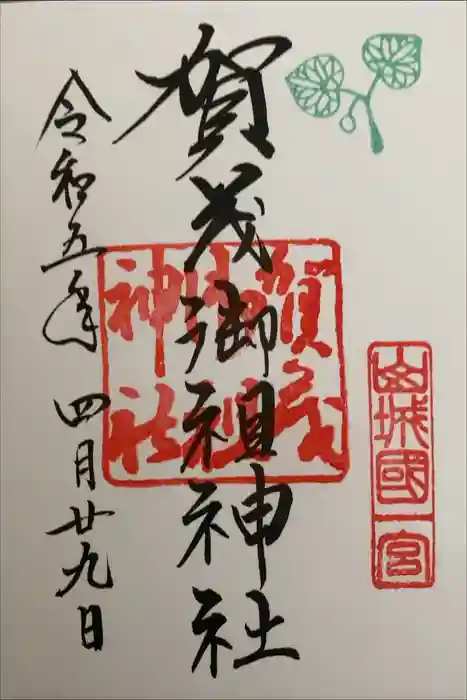 山城國一宮
賀茂御祖神社
賀茂御祖神社
令和五年四月廿九日